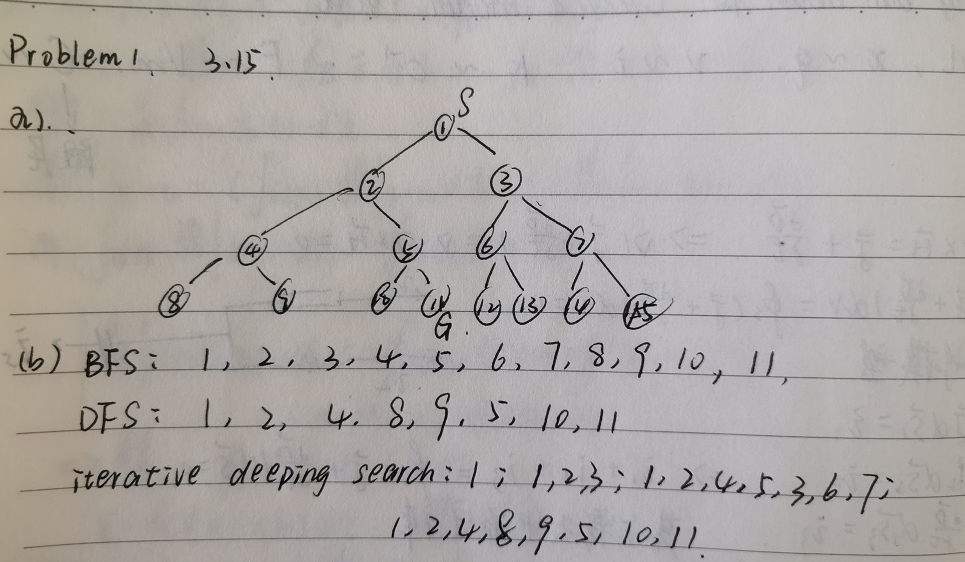 Problem 1. 3.15.
a).
S
1
2 3
4 5 6 7
8 9 10 11 12 13 14 15
G.
(b) BFS: 1, 2, 3, 4, 5, 6, 7, 8, 9, 10, 11,
DFS: 1, 2, 4. 8, 9. 5, 10, 11
iterative deeping search: 1; 1,2,3; 1, 2,4,5,3,6,7;
1,2,4,8,9.5,10,11.